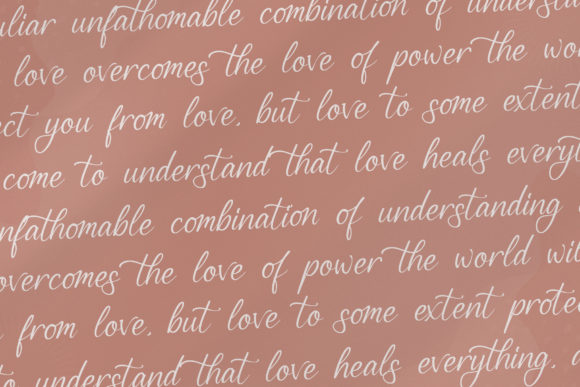 uliar unfathomable combination of understa
love overcomes the love of power the wo
ect you from love. but love to some extent
come to understand that love heals everyt
nfathomable combination of understanding
overcomes the love of power the world wil
from love. but love to some extent prote
to understand that love heals everything. a